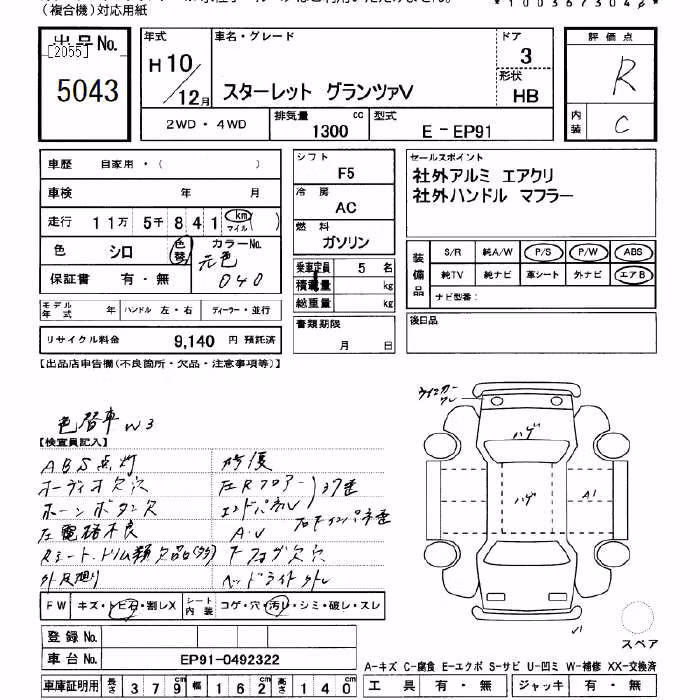 (複合機)対応用紙
*100367304*
出品No.
[2055]
5043
年式
H10/12月
車名・グレード
スターレット グランツァV
ドア
3
形状
HB
評価点
R
内装
C
2WD・4WD
排気量
1300 cc
型式
E-EP91
車歴 自家用・( )
車検 年 月
走行 11万 5千 841 (km マイル)
色 シロ 色替 カラーNo.
元色 040
保証書 有・無
モデル年式 年 ハンドル 左・右 ディーラー・並行
リサイクル料金 9,140 円 預託済
シフト
F5
冷房
AC
燃料
ガソリン
乗車定員 5 名
積載量 kg
総重量 kg
書類期限
月 日
セールスポイント
社外アルミ エアクリ
社外ハンドル マフラー
装備品
S/R 純A/W P/S P/W ABS
純TV 純ナビ 革シート 外ナビ エアB
ナビ型番:
後日品
【出品店申告欄(不良箇所・欠品・注意事項等)】
色替車 W3
【検査員記入】
ABS点灯
オーディオ欠穴
ホーンボタン欠
左電格不良
外尺廻り
修復
左Rフロアー
エンドパネル
ヘッドライト
ウインカー
ハゲ
ハゲ
A1
FW キズ・トビ石・割レX シート内装 コゲ・穴・汚レ・シミ・破レ・スレ
登録No.
車台No. EP91-0492322
車庫証明用 長さ 379 幅 162 高さ 140
スペア
A-キズ C-腐食 E-エクボ S-サビ U-凹ミ W-補修 XX-交換済
工具 有・無 ジャッキ 有・無